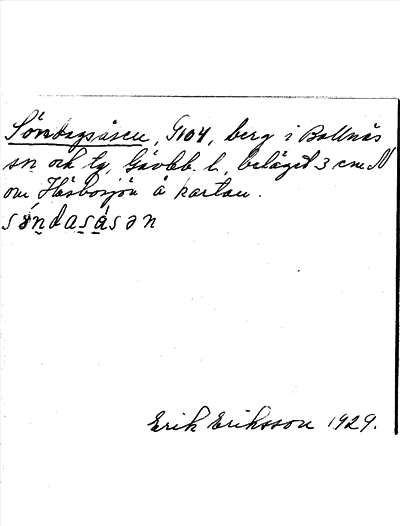 Söndagsåsen, G104, berg i Bollnäs
sn och tg, Gävbb. l., beläget 3 cm N
om Häsbosjön å kartan.
söndasåsən
Erik Eriksson 1929.